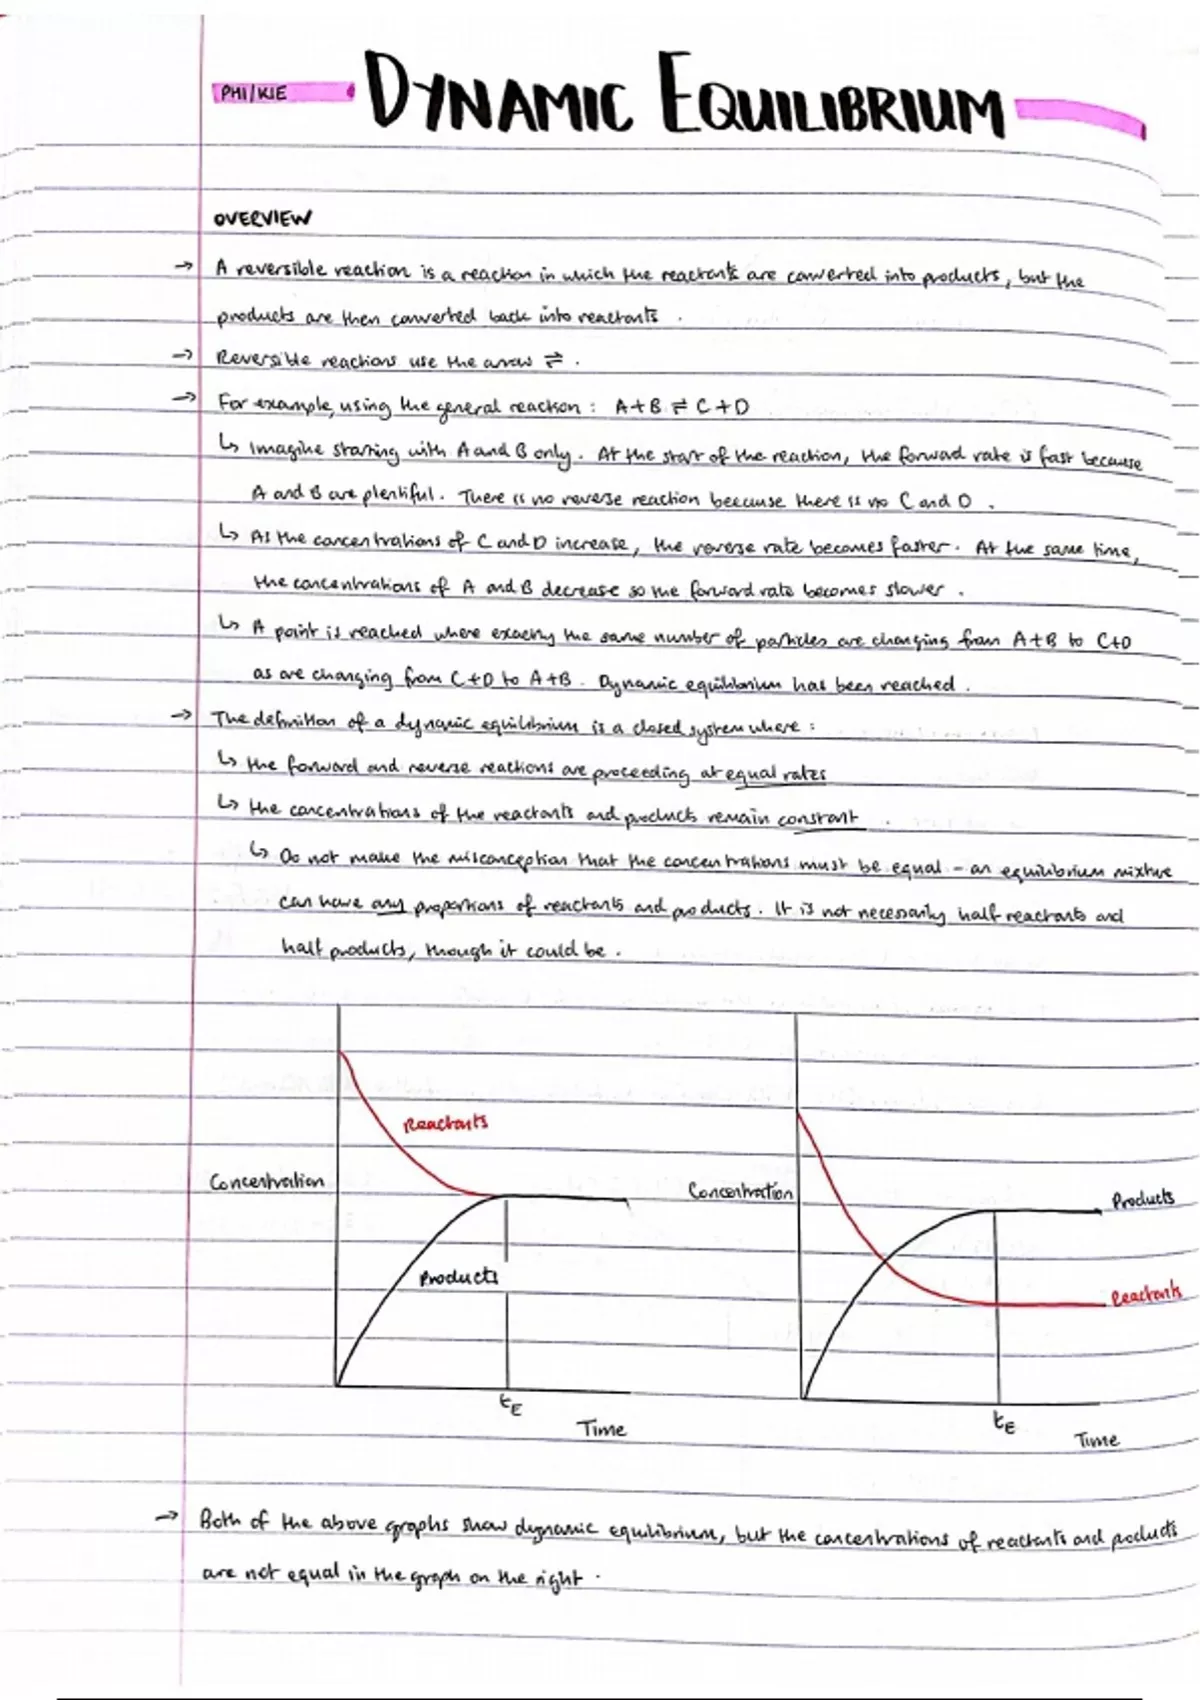 PHI/KIE
DYNAMIC EQUILIBRIUM
OVERVIEW
→ A reversible reaction is a reaction in which the reactants are converted into products, but the
products are then converted back into reactants.
→ Reversible reactions use the arrow ⇌.
→ For example, using the general reaction: A + B ⇌ C + D
↳ Imagine starting with A and B only. At the start of the reaction, the forward rate is fast because
A and B are plentiful. There is no reverse reaction because there is no C and D.
↳ As the concentrations of C and D increase, the reverse rate becomes faster. At the same time,
the concentrations of A and B decrease so the forward rate becomes slower.
↳ A point is reached where exactly the same number of particles are changing from A+B to C+D
as are changing from C+D to A+B. Dynamic equilibrium has been reached.
→ The definition of a dynamic equilibrium is a closed system where:
↳ the forward and reverse reactions are proceeding at equal rates
↳ the concentrations of the reactants and products remain constant.
↳ Do not make the misconception that the concentrations must be equal - an equilibrium mixture
can have any proportions of reactants and products. It is not necessarily half reactants and
half products, though it could be.
Reactants
Concentration
Products
tE
Time
Concentration
Products
Reactants
tE
Time
→ Both of the above graphs show dynamic equilibrium, but the concentrations of reactants and products
are not equal in the graph on the right.